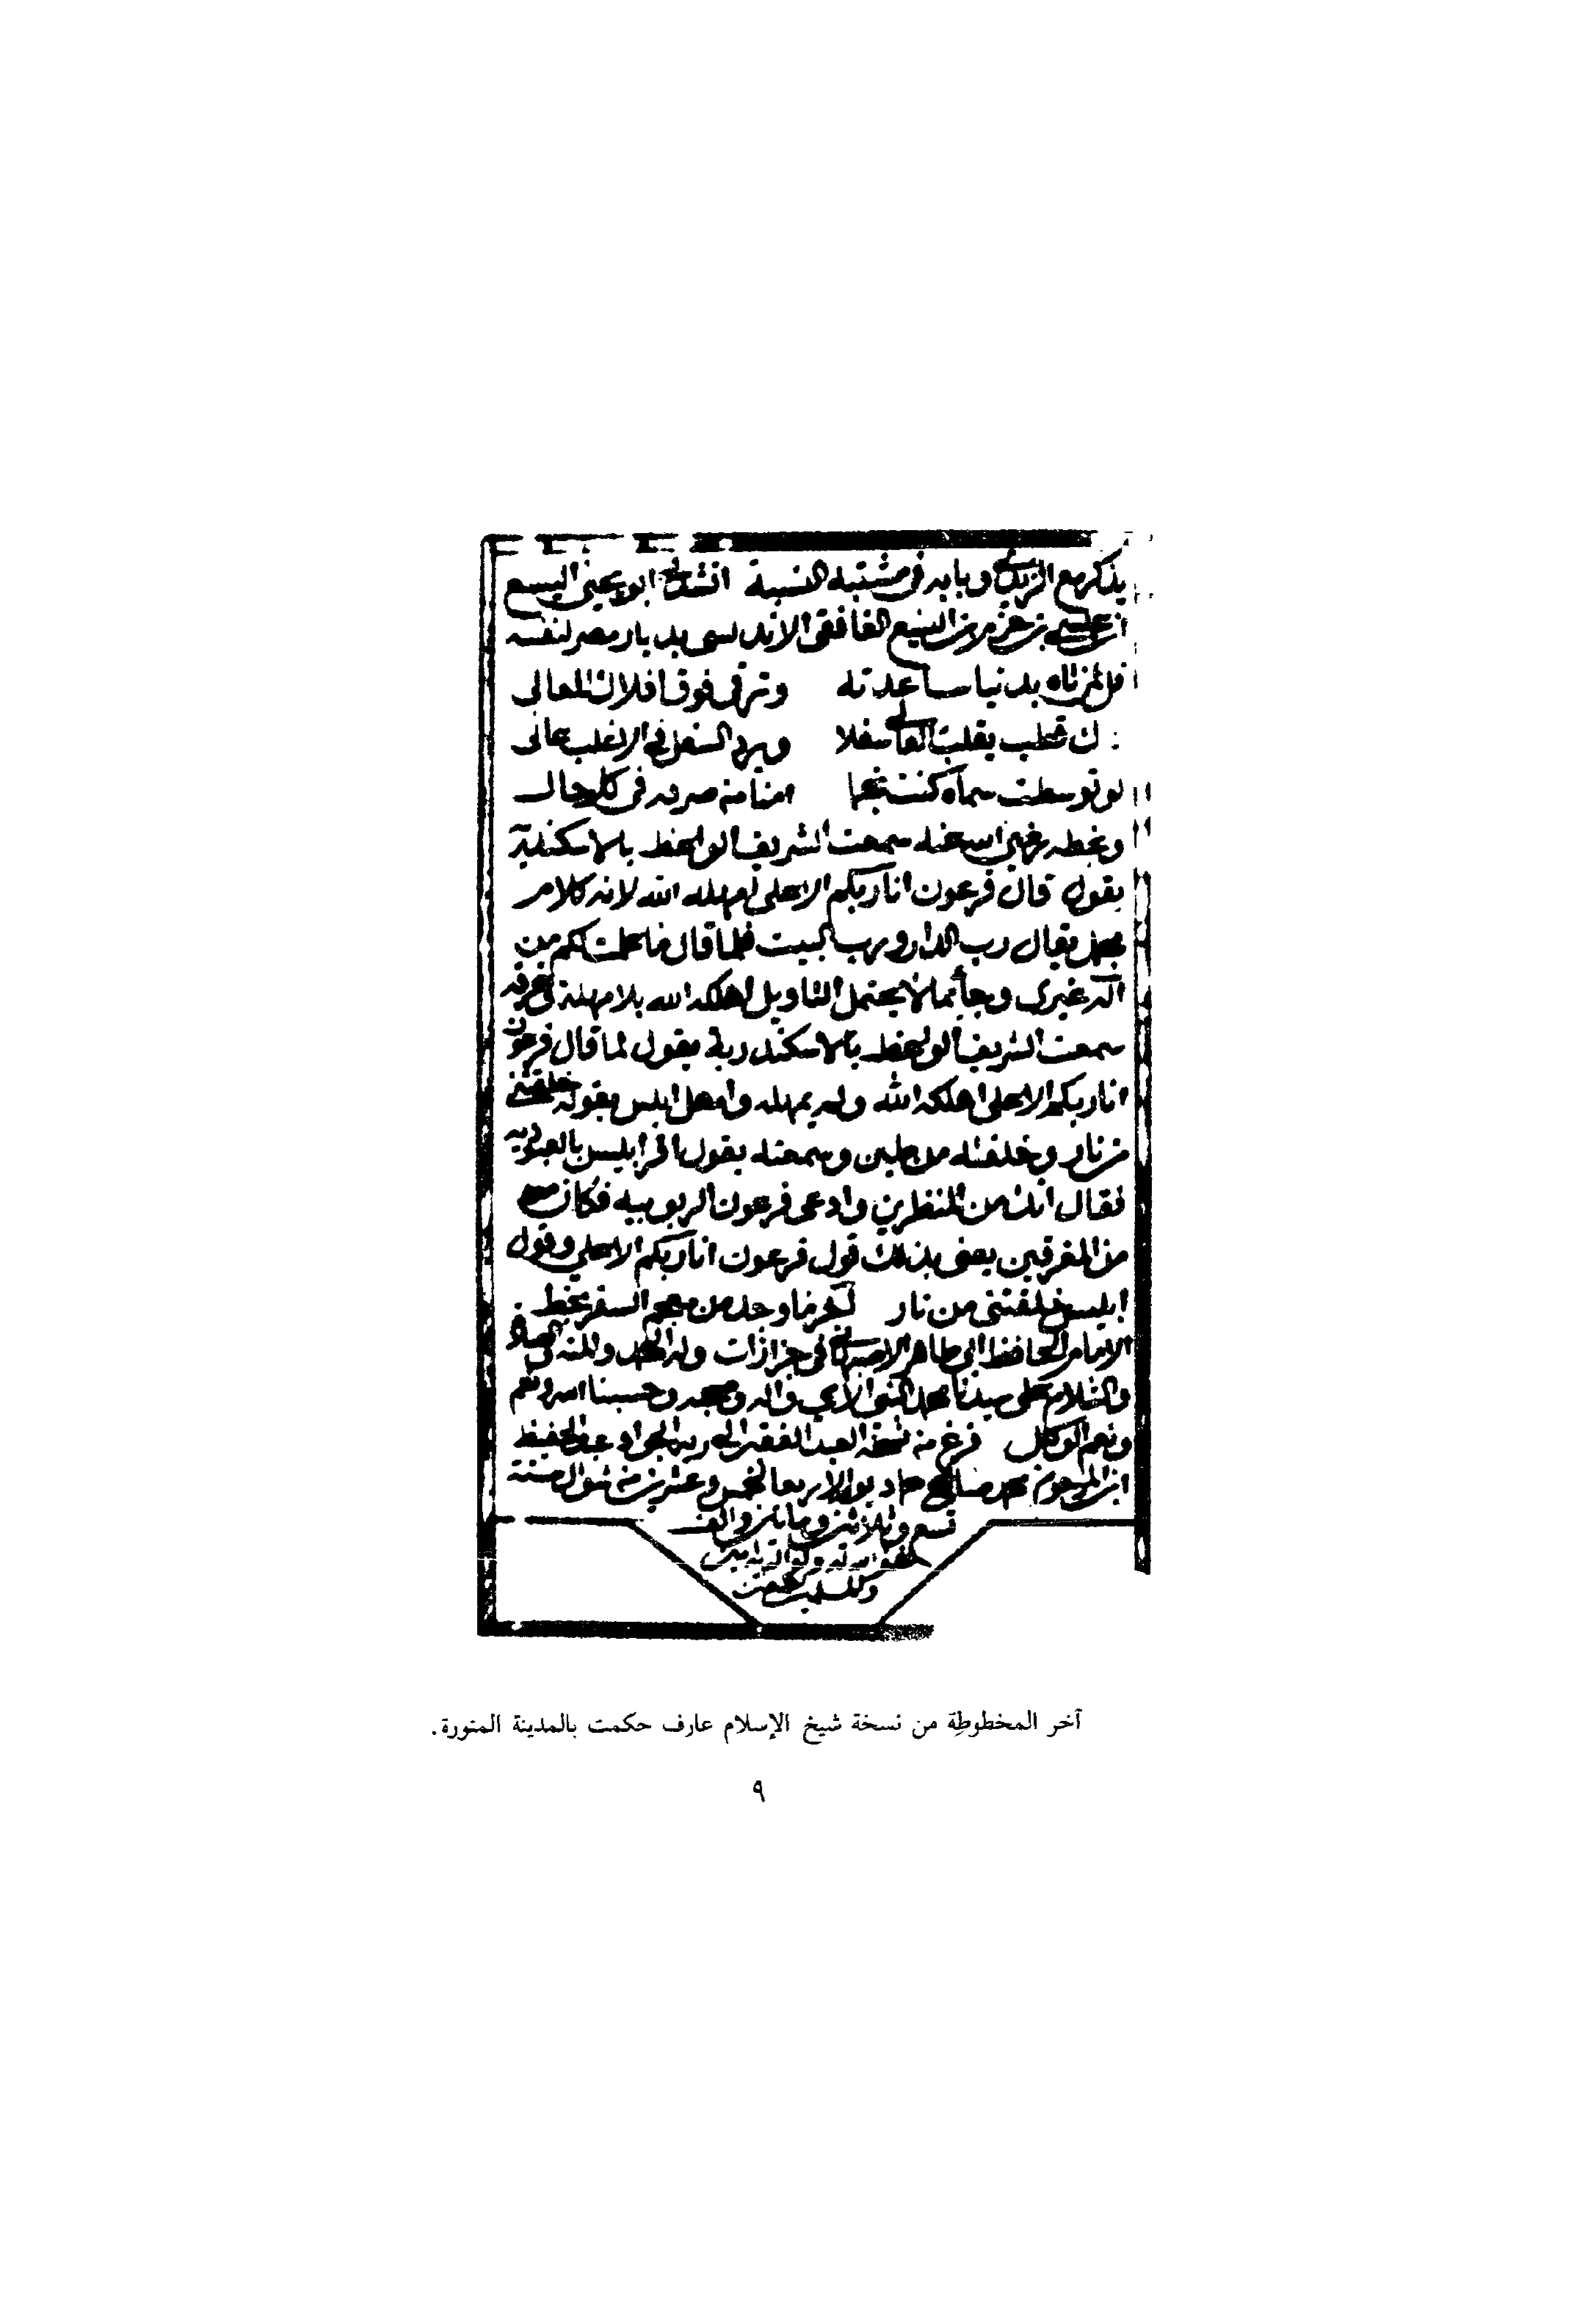 يذكر مع الزيدي وبابه في مشتبه النسبة انشدني ابو يحيى اليسع
ابن عيسى بن حزم بن اليسع الغافقي الاندلسي بديار مصر لنفسه
بدنيا ساعدته وترقى فوق افلاك المعالي
يقلب العالي سفلا ويرد السفل في الاغلب عالي
لو توسطت سماه كنت نجما امنا من صرفه في كل حال
وبخطه سمعت الشريف الواعظ بالاسكندرية
يقول قال فرعون انا ربكم الاعلى امهله الله لانه كلام
مجمل يقال رب الدار ورب البيت فلما قال ما علمت لكم من
اله غيري وجأ بما لا يحتمل التاويل اهلكه الله بلا مهلة
سمعت الشريف الواعظ بالاسكندرية يقول لما قال فرعون
انا ربكم الاعلى اهلكه الله ولم يمهله وامهل ابليس بقوله خلقتني
من نار وخلقته من طين وسمعته يقول اقر ابليس بالعبودية
فقال انك من المنظرين وادعى فرعون الربوبيه فكان
من المغرقين يعني بذلك قول فرعون انا ربكم الاعلى وقول
ابليس خلقتني من نار اخر ما وجد من معجم السفر بخط
الامام الحافظ ابي طاهر الاصبهاني في جزازات وله الحمد والمنه
والسلام على سيدنا محمد النبي الامي واله وصحبه وحسبنا الله ونعم
ونعم الوكيل فرغ من نسخه العبد الفقير الى ربه الجواد عبد الحفيظ
ابن المرحوم محمد صالح حماد يوم الاربعا لخمس وعشرين من شوال سنة
تسع وثلاثين ومايتين والف
غفر الله له ولوالديه
آخر المخطوطة من نسخة شيخ الإسلام عارف حكمت بالمدينة المنورة.
٩